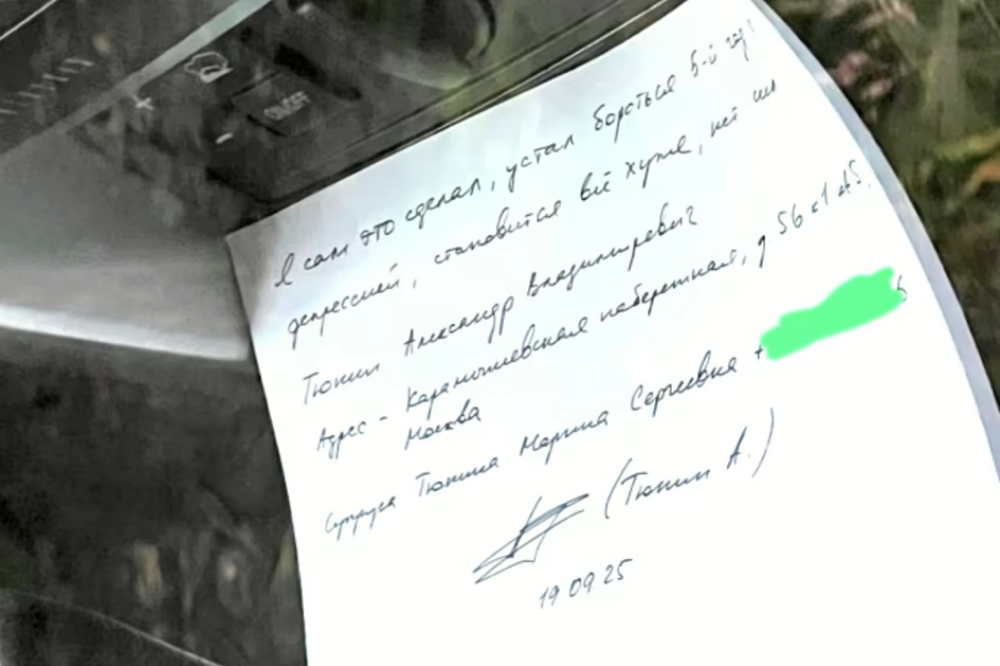 ON/OFF
Я сам это сделал, устал бороться 5-й год
депрессией, становится всё хуже, нет
Тюнин Александр Владимирович
Адрес - Карамышевская набережная, д 56 к 1
Москва
Супруга Тюнина Марина Сергеевна +
(Тюнин А.)
19 09 25